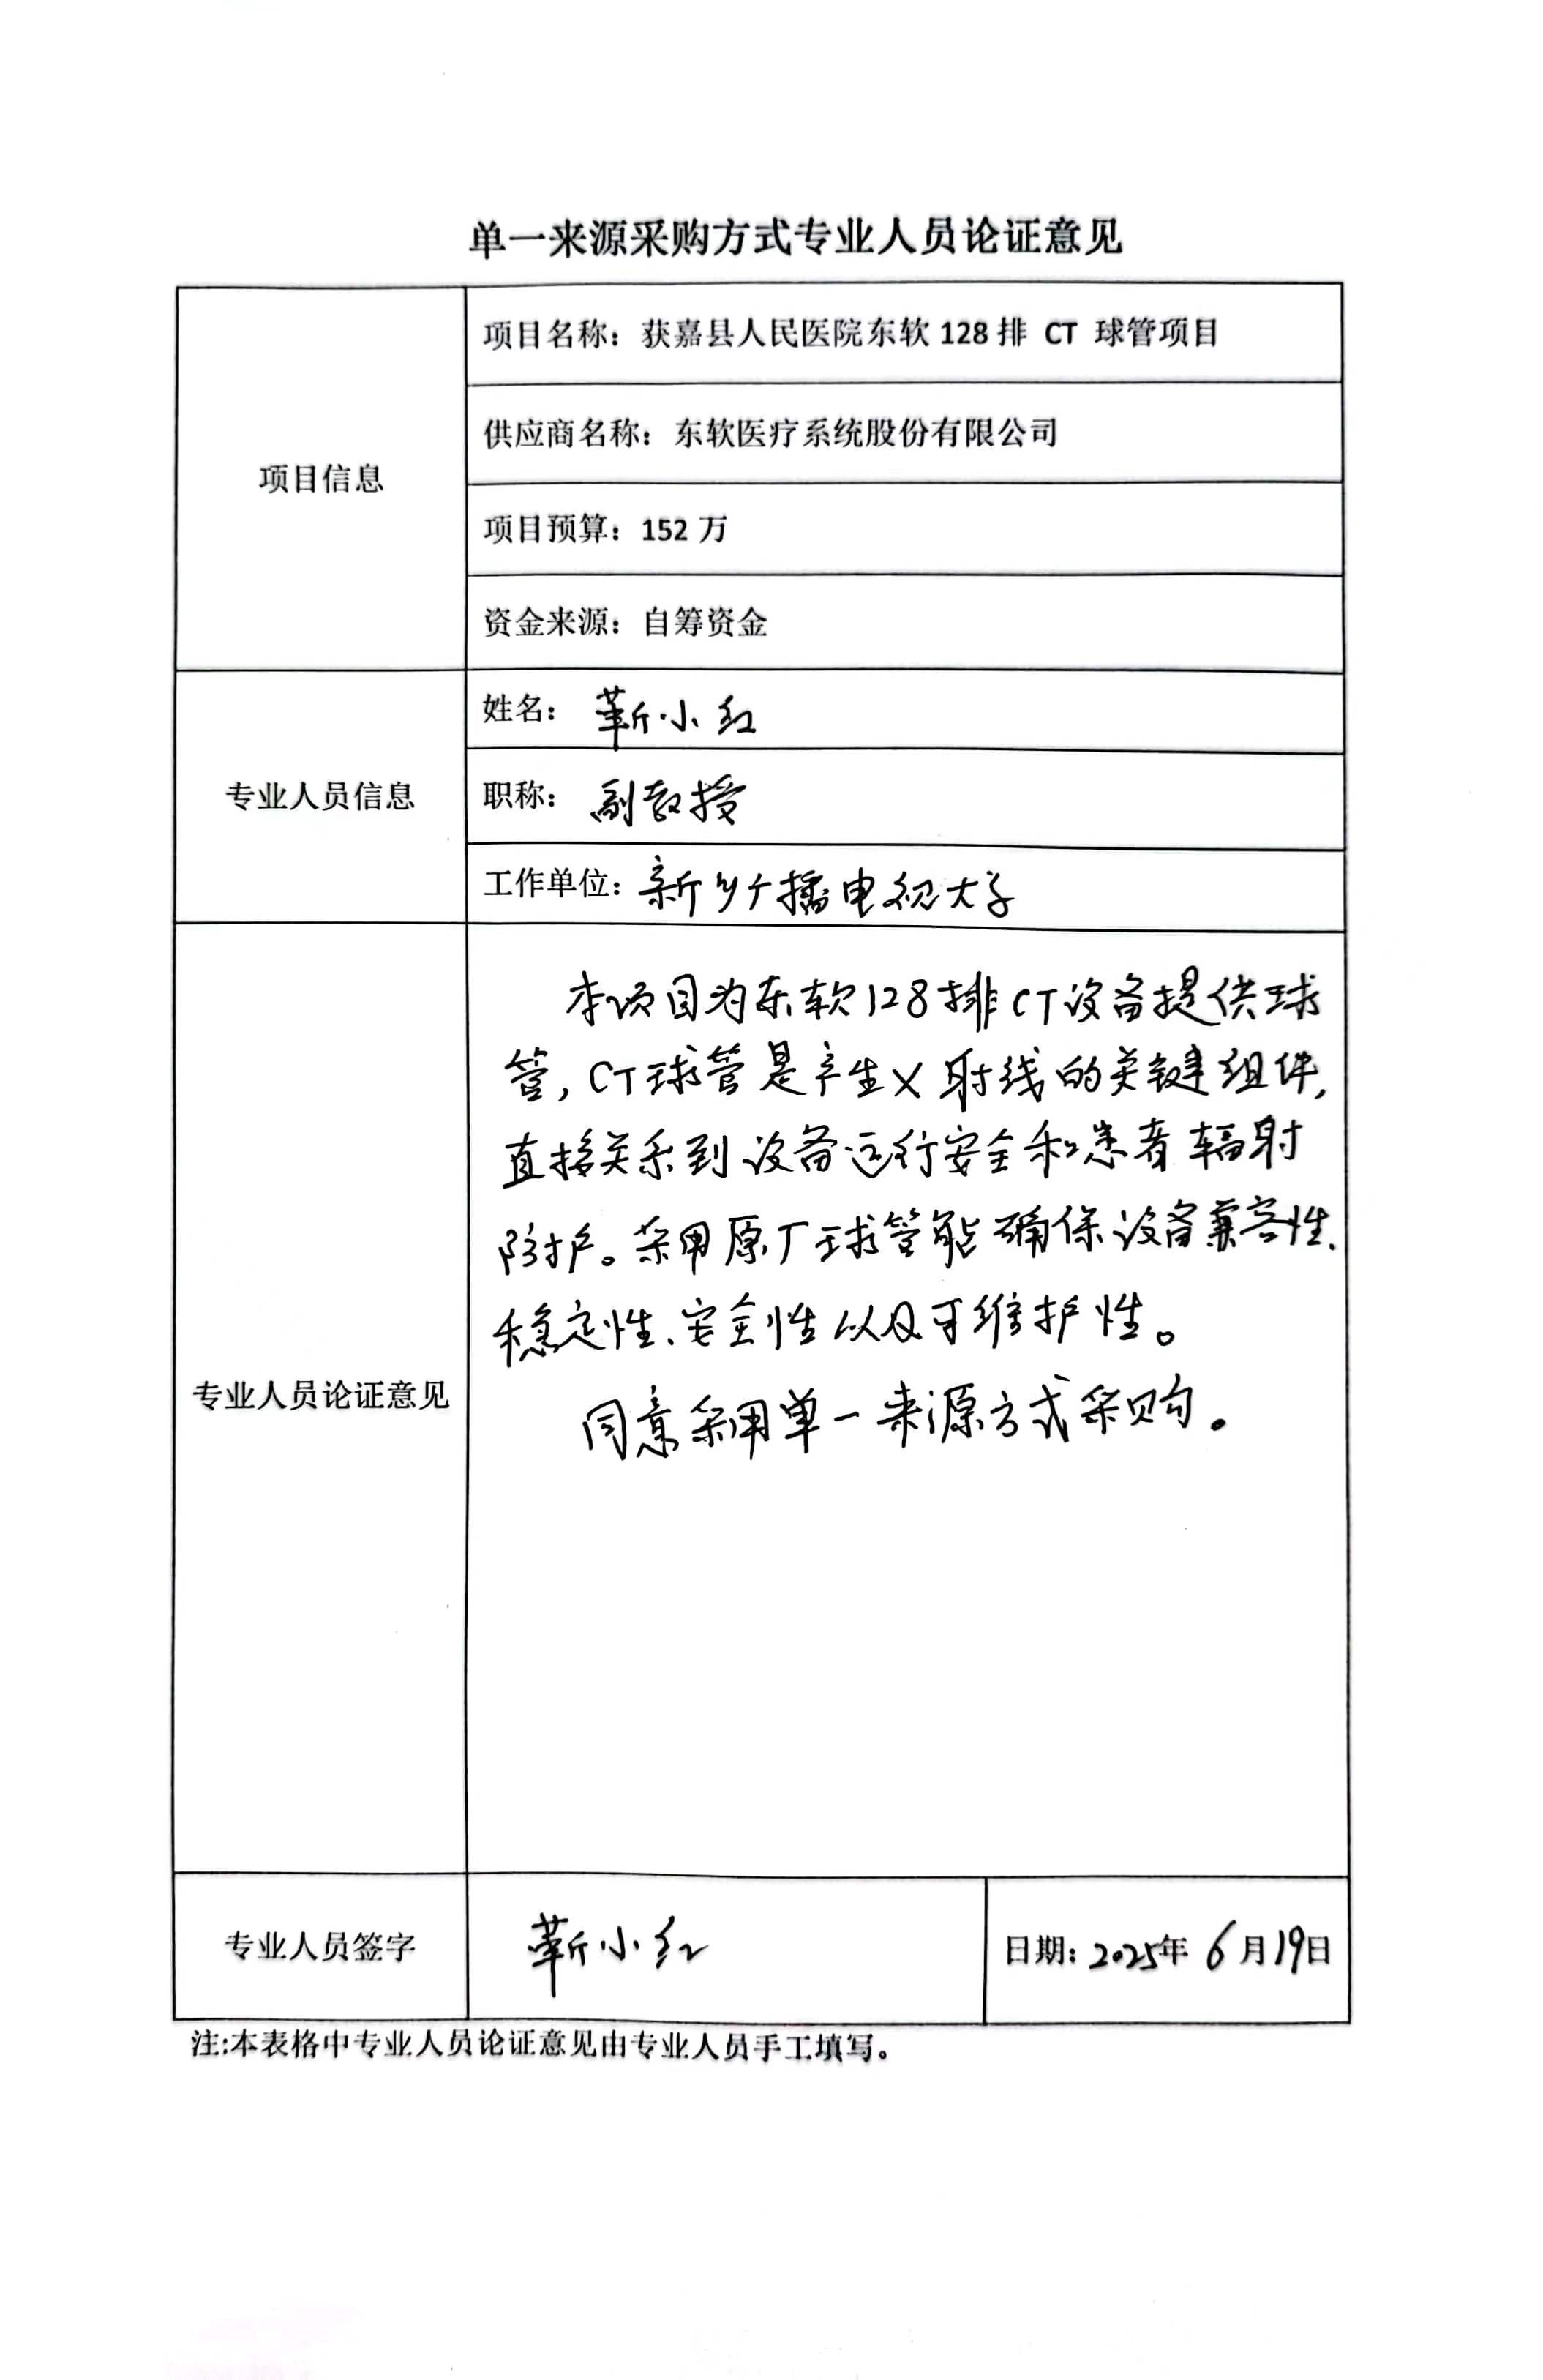 单一来源采购方式专业人员论证意见
项目信息
项目名称：获嘉县人民医院东软128排 CT 球管项目
供应商名称：东软医疗系统股份有限公司
项目预算：152万
资金来源：自筹资金
专业人员信息
姓名：靳小红
职称：副教授
工作单位：新乡广播电视大学
专业人员论证意见
本项目为东软128排CT设备提供球
管，CT球管是产生X射线的关键组件，
直接关系到设备运行安全和患者辐射
防护。采用原厂球管能确保设备兼容性、
稳定性、安全性以及可维护性。
同意采用单一来源方式采购。
专业人员签字
靳小红
日期：2025年6月19日
注:本表格中专业人员论证意见由专业人员手工填写。